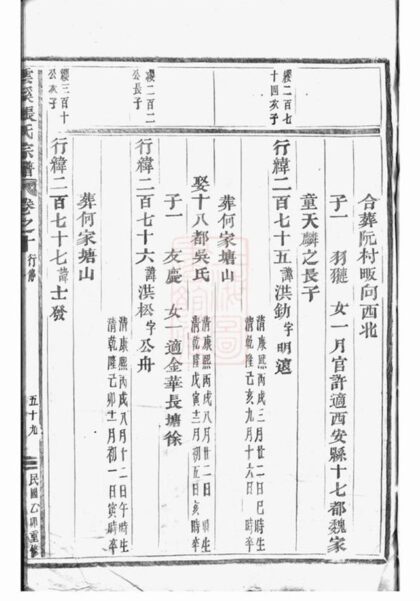 合葬阮村畈向西北
子一 羽㺄 女一月官許適西安縣十七都魏家
童天麟之長子
纓二百七十四亥子
行緯二百七十五諱洪勛字明遠
清康熙丙戌三月廿二日巳時生
清乾隆己亥九月十六日時卒
葬何家塘山
娶十八都吳氏
清康熙丙戌八月廿二日亥時生
清乾隆戊寅十二月初五日亥時卒
子一 友慶 女一適金華長塘徐
纓二百二公長子
行緯二百七十六諱洪松字公舟
清康熙丙戌八月廿二日午時生
清乾隆己卯十一月初一日寅時卒
葬何家塘山
纓三百十公亥子
行緯二百七十七諱士發
雲溪張氏宗譜 卷之十 行傳 五十九 民國乙卯重修